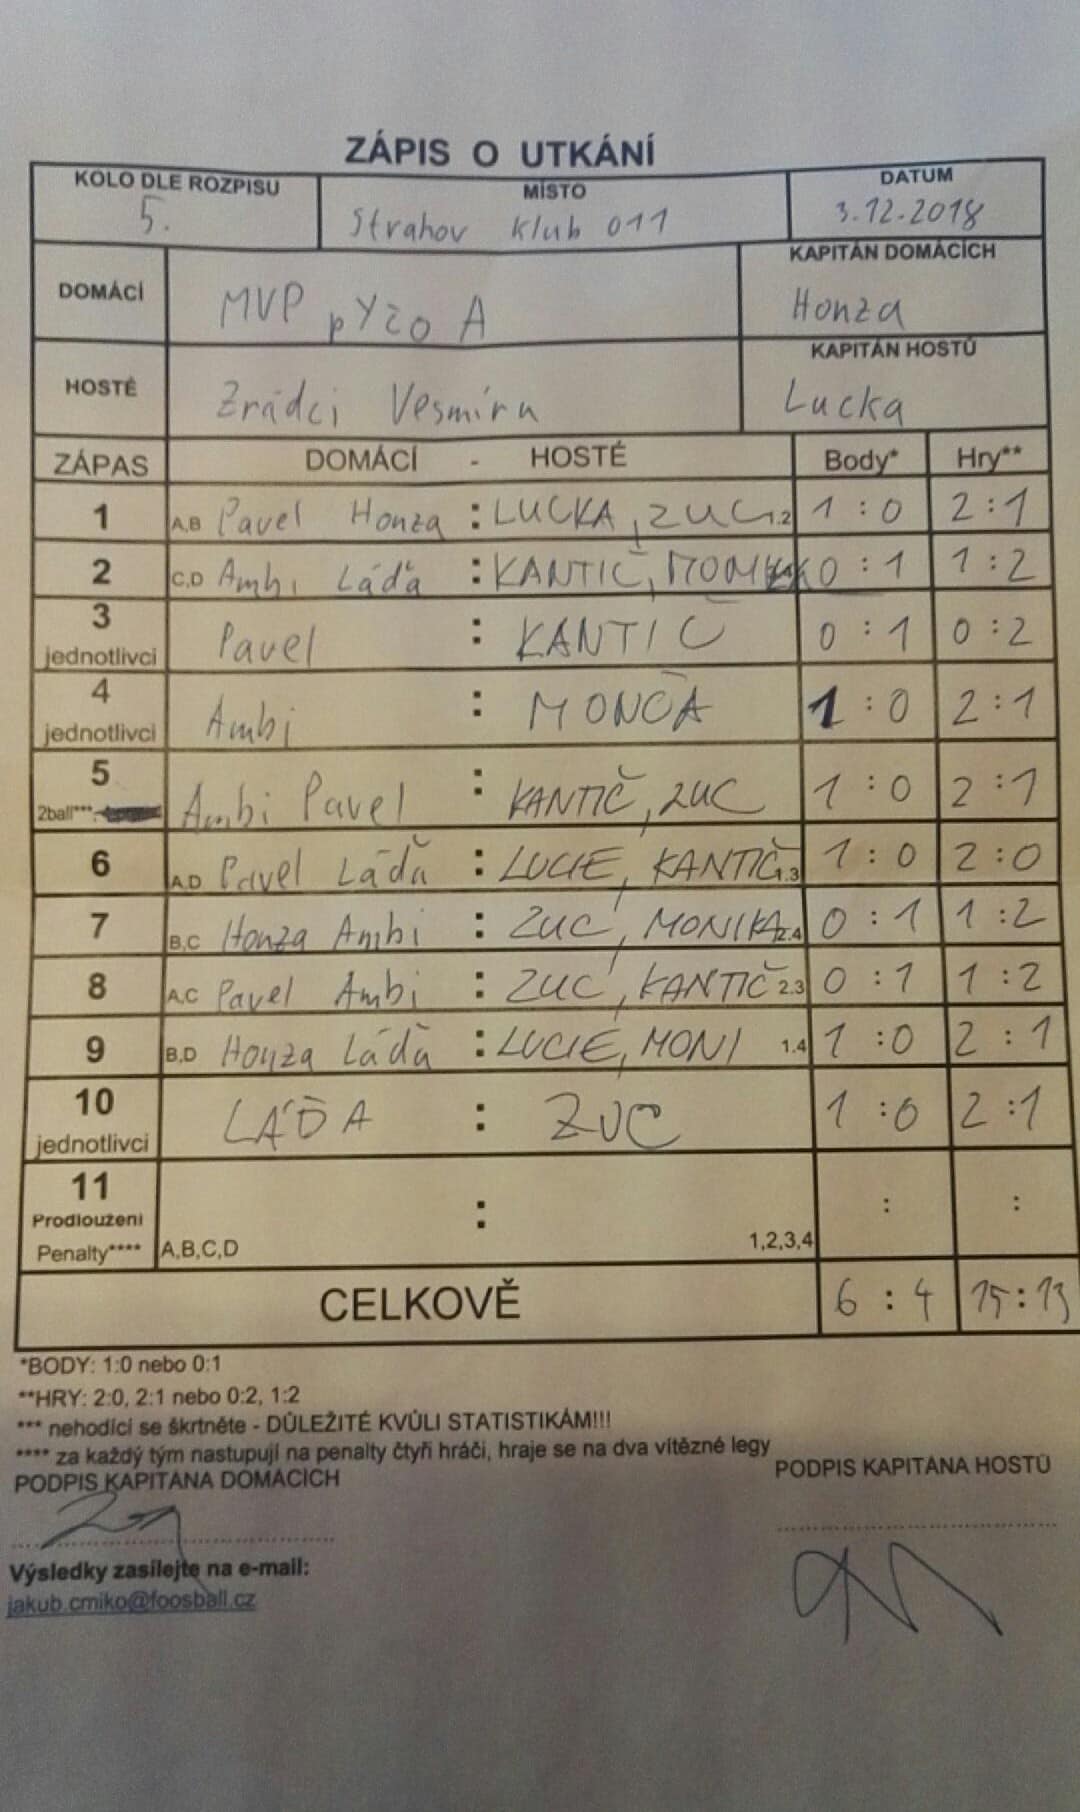 ZÁPIS O UTKÁNÍ
KOLO DLE ROZPISU MÍSTO DATUM
5. Strahov Klub 011 3.12.2018
DOMÁCÍ MVP pYzo A KAPITÁN DOMÁCÍCH
Honza
HOSTÉ Zrádci Vesmíru KAPITÁN HOSTŮ
Lucka
ZÁPAS DOMÁCÍ - HOSTÉ Body* Hry**
1 A,B Pavel Honza : LUCKA, ZUC 1.2 1:0 2:1
2 C,D Ambi Láďa : KANTIČ, 0:1 1:2
3 jednotlivci Pavel : KANTIČ 0:1 0:2
4 jednotlivci Ambi : MONČA 1:0 2:1
5 2ball*** Ambi Pavel : KANTIČ, ZUC 1:0 2:1
6 A,D Pavel Láďa : LUCIE, KANTIČ 1.3 1:0 2:0
7 B,C Honza Ambi : ZUC, MONIKA 2.4 0:1 1:2
8 A,C Pavel Ambi : ZUC, KANTIČ 2.3 0:1 1:2
9 B,D Honza Láďa : LUCIE, MONI 1.4 1:0 2:1
10 jednotlivci LÁĎA : ZUC 1:0 2:1
11 Prodloužení
Penalty**** A,B,C,D : 1,2,3,4 : :
CELKOVĚ 6:4 15:13
*BODY: 1:0 nebo 0:1
**HRY: 2:0, 2:1 nebo 0:2, 1:2
*** nehodící se škrtněte - DŮLEŽITÉ KVŮLI STATISTIKÁM!!!
**** za každý tým nastupují na penalty čtyři hráči, hraje se na dva vítězné legy
PODPIS KAPITÁNA DOMÁCÍCH PODPIS KAPITÁNA HOSTŮ
Výsledky zasílejte na e-mail:
jakub.cmiko@foosball.cz